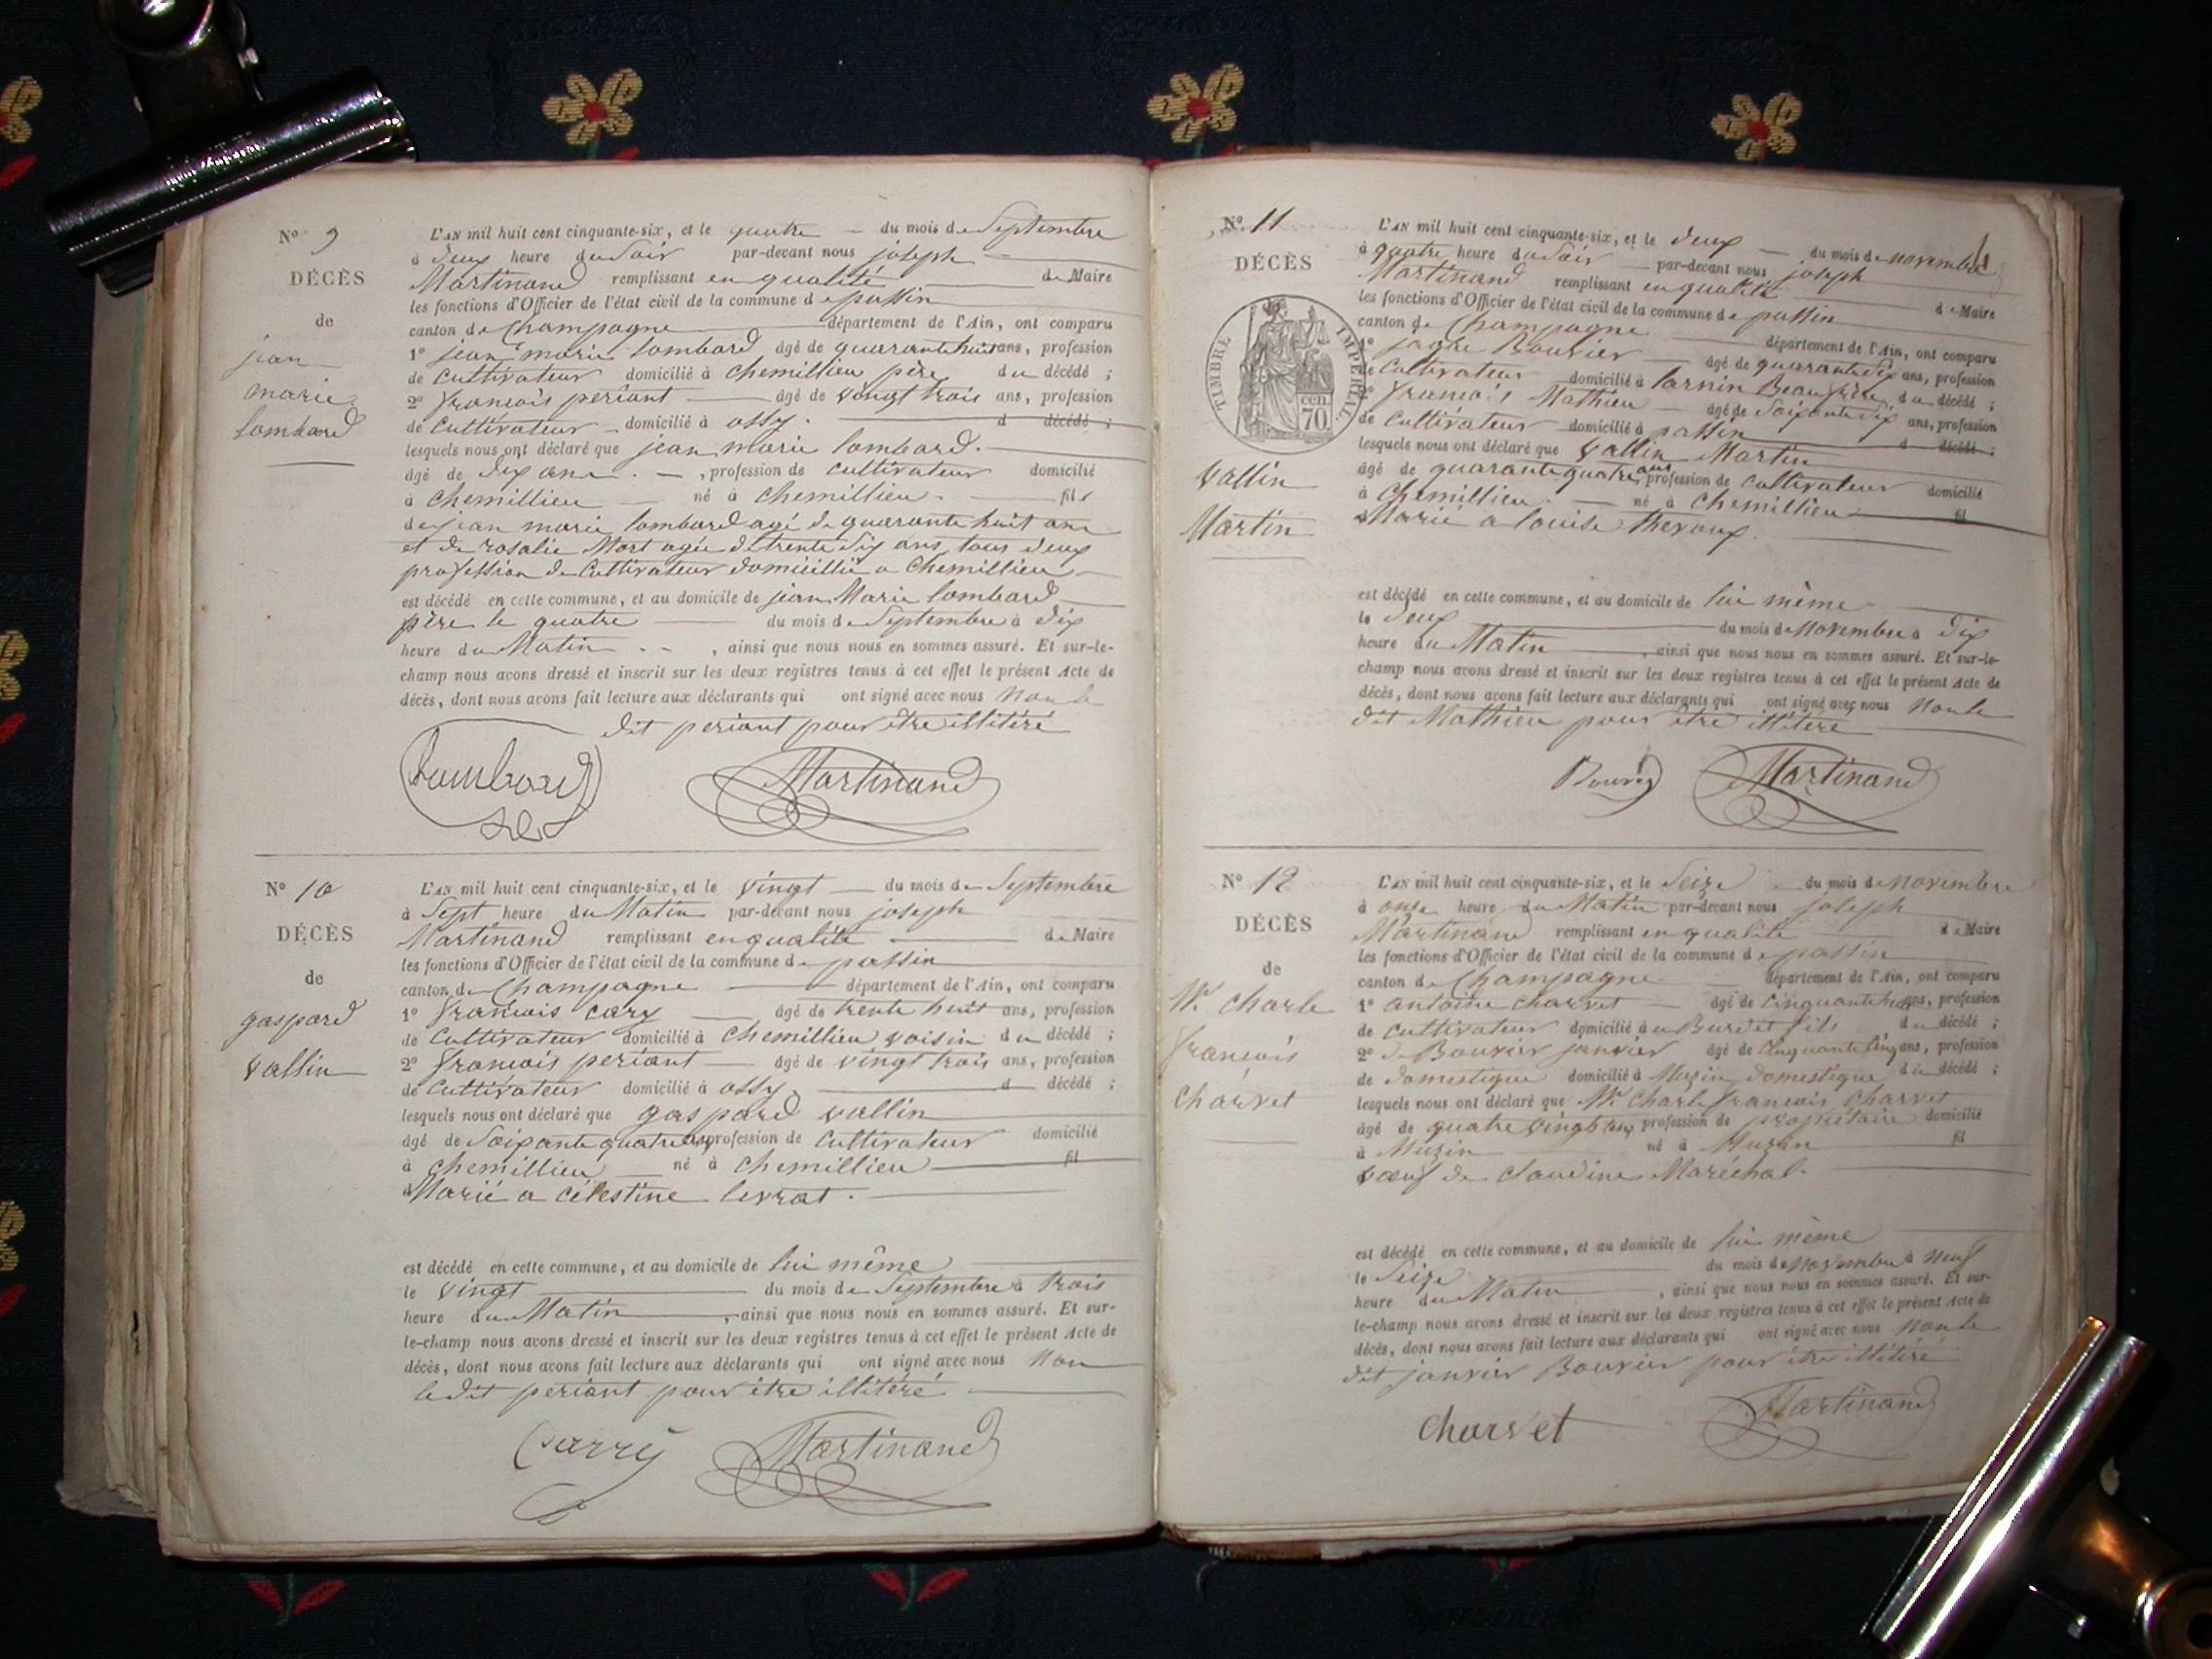 N° 9
DÉCÈS
de
jean
marie
lombard
L'AN mil huit cent cinquante-six, et le quatre du mois de Septembre
à deux heure du Soir par-devant nous joseph
Martinand remplissant en qualité de Maire
les fonctions d'Officier de l'état civil de la commune de passin
canton de Champagne département de l'Ain, ont comparu
1° jean marie lombard âgé de quarante huit ans, profession
de Cultivateur domicilié à chemillieu père du décédé ;
2° francois periant âgé de vingt trois ans, profession
de Cultivateur domicilié à ossy. d décédé ;
lesquels nous ont déclaré que jean marie lombard.
âgé de dix ans. , profession de cultivateur domicilié
à chemillieu né à chemillieu. fils
de jean marie lombard agé de quarante huit ans
et de rosalie Mort agée de trente six ans tous deux
profession de Cultivateur domicillié a Chemillieu
est décédé en cette commune, et au domicile de jean Marie lombard
père le quatre du mois de Septembre à dix
heure du Matin , ainsi que nous nous en sommes assuré. Et sur-le-
champ nous avons dressé et inscrit sur les deux registres tenus à cet effet le présent Acte de
décès, dont nous avons fait lecture aux déclarants qui ont signé avec nous Non le
dit periant pour être illitéré
Lombard Martinand
N° 10
DÉCÈS
de
gaspard
vallin
L'AN mil huit cent cinquante-six, et le vingt du mois de Septembre
à Sept heure du Matin par-devant nous joseph
Martinand remplissant en qualité de Maire
les fonctions d'Officier de l'état civil de la commune de passin
canton de Champagne département de l'Ain, ont comparu
1° francois cary âgé de trente huit ans, profession
de Cultivateur domicilié à Chemillieu voisin du décédé ;
2° francois periant âgé de vingt trois ans, profession
de Cultivateur domicilié à ossy d décédé ;
lesquels nous ont déclaré que gaspard vallin
âgé de Soixante quatre ans profession de Cultivateur domicilié
à chemillieu né à chemillieu fil
Marié a célestine levrat.
est décédé en cette commune, et au domicile de lui même
le vingt du mois de Septembre à trois
heure du Matin , ainsi que nous nous en sommes assuré. Et sur-
le-champ nous avons dressé et inscrit sur les deux registres tenus à cet effet le présent Acte de
décès, dont nous avons fait lecture aux déclarants qui ont signé avec nous Non
le dit periant pour être illitéré
Carry Martinand
N° 11
DÉCÈS
TIMBRE IMPÉRIAL
cen. 70.
vallin
Martin
L'AN mil huit cent cinquante-six, et le deux du mois de novembre
à quatre heure du Soir par-devant nous joseph
Martinand remplissant en qualité de Maire
les fonctions d'Officier de l'état civil de la commune de passin
canton de Champagne département de l'Ain, ont comparu
1° Bouvier âgé de quarante six ans, profession
de Cultivateur domicilié à Beaufrère du décédé ;
2° francois Mathieu âgé de Soixante dix ans, profession
de Cultivateur domicilié à passin d décédé ;
lesquels nous ont déclaré que vallin Martin
âgé de quarante quatre ans profession de Cultivateur domicilié
à Chemillieu. né à Chemillieu fil
Marié a louise
est décédé en cette commune, et au domicile de lui même
le deux du mois de Novembre à dix
heure du Matin , ainsi que nous nous en sommes assuré. Et sur-le-
champ nous avons dressé et inscrit sur les deux registres tenus à cet effet le présent Acte de
décès, dont nous avons fait lecture aux déclarants qui ont signé avec nous Non le
dit Mathieu pour être illitéré
Martinand
N° 12
DÉCÈS
de
Mr charle
francois
Charvet
L'AN mil huit cent cinquante-six, et le Seize du mois de novembre
à onze heure du Matin par-devant nous joseph
Martinand remplissant en qualité de Maire
les fonctions d'Officier de l'état civil de la commune de passin
canton de Champagne département de l'Ain, ont comparu
1° antoine charvet âgé de cinquante ans, profession
de cultivateur domicilié à fils du décédé ;
2° Bouvier janvier âgé de cinquante cinq ans, profession
de domestique domicilié à Muzin domestique du décédé ;
lesquels nous ont déclaré que Mr Charle francois charvet
âgé de quatre vingt ans profession de propriétaire domicilié
à Muzin né à Muzin fil
vœuf de claudine Maréchal.
est décédé en cette commune, et au domicile de lui même
le Seize du mois de Novembre à neuf
heure du Matin , ainsi que nous nous en sommes assuré. Et sur-
le-champ nous avons dressé et inscrit sur les deux registres tenus à cet effet le présent Acte de
décès, dont nous avons fait lecture aux déclarants qui ont signé avec nous Non le
dit janvier Bouvier pour être illitéré
charvet Martinand